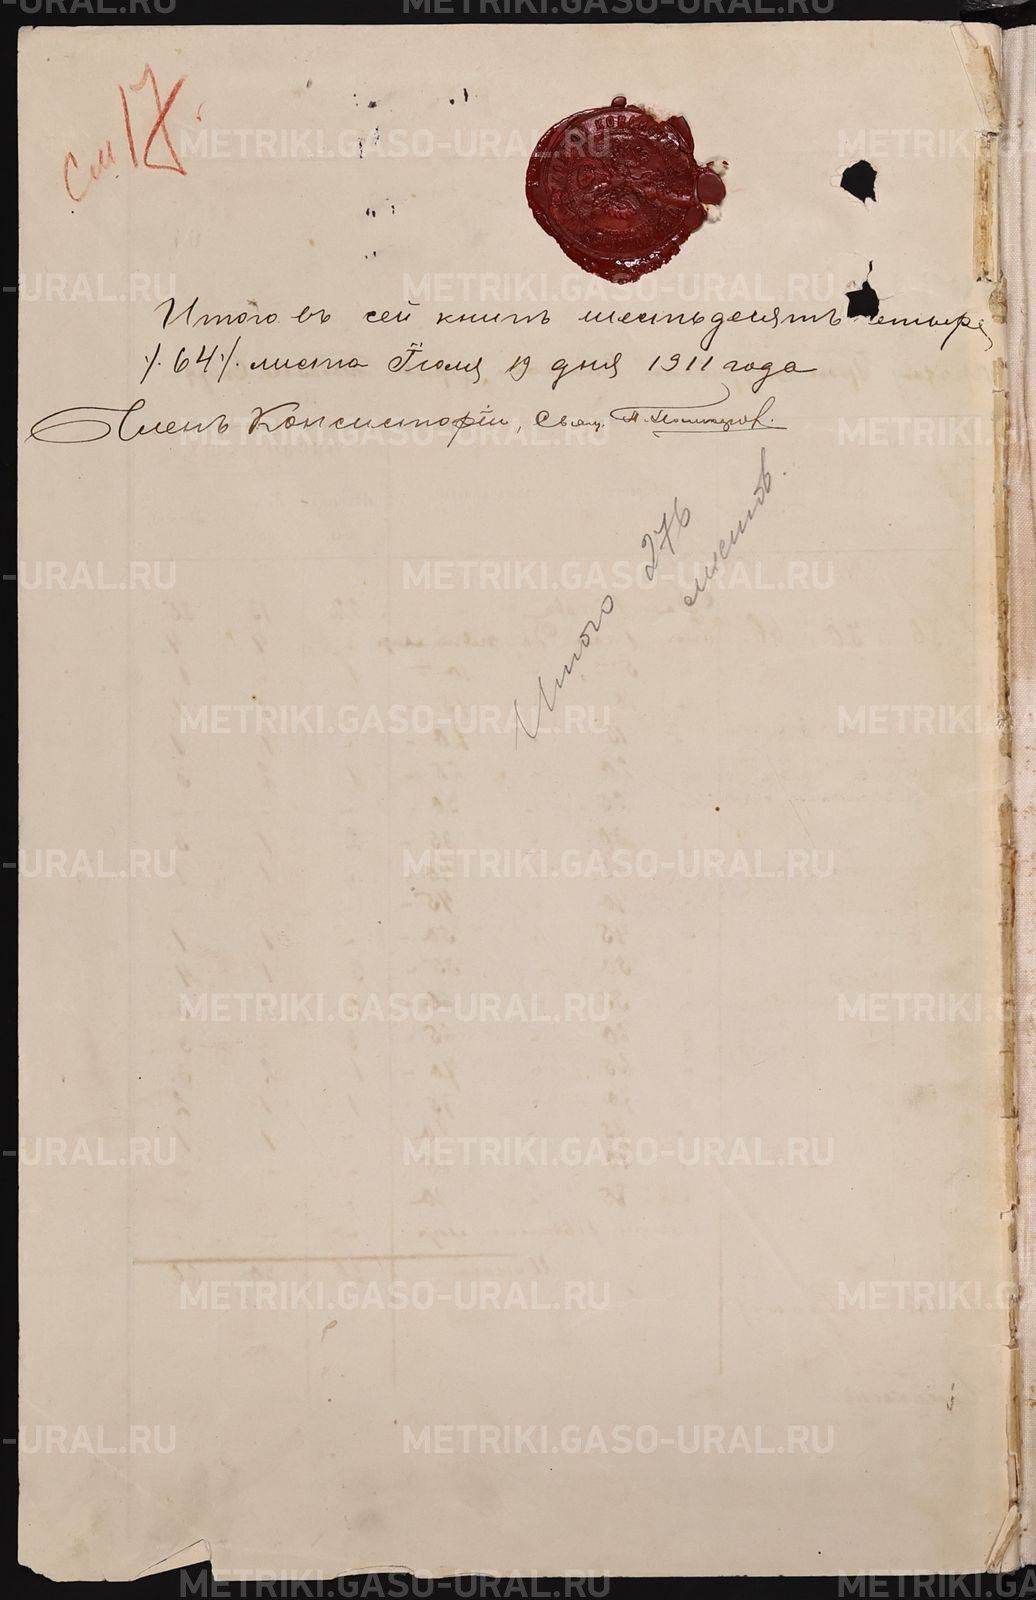 см 17.
Итого въ сей книгѣ шестьдесятъ четыре
/. 64 /. листа Іюля 19 дня 1911 года
Членъ Консисторіи, Свящ.
Итого 276
листов.
METRIKI.GASO-URAL.RU